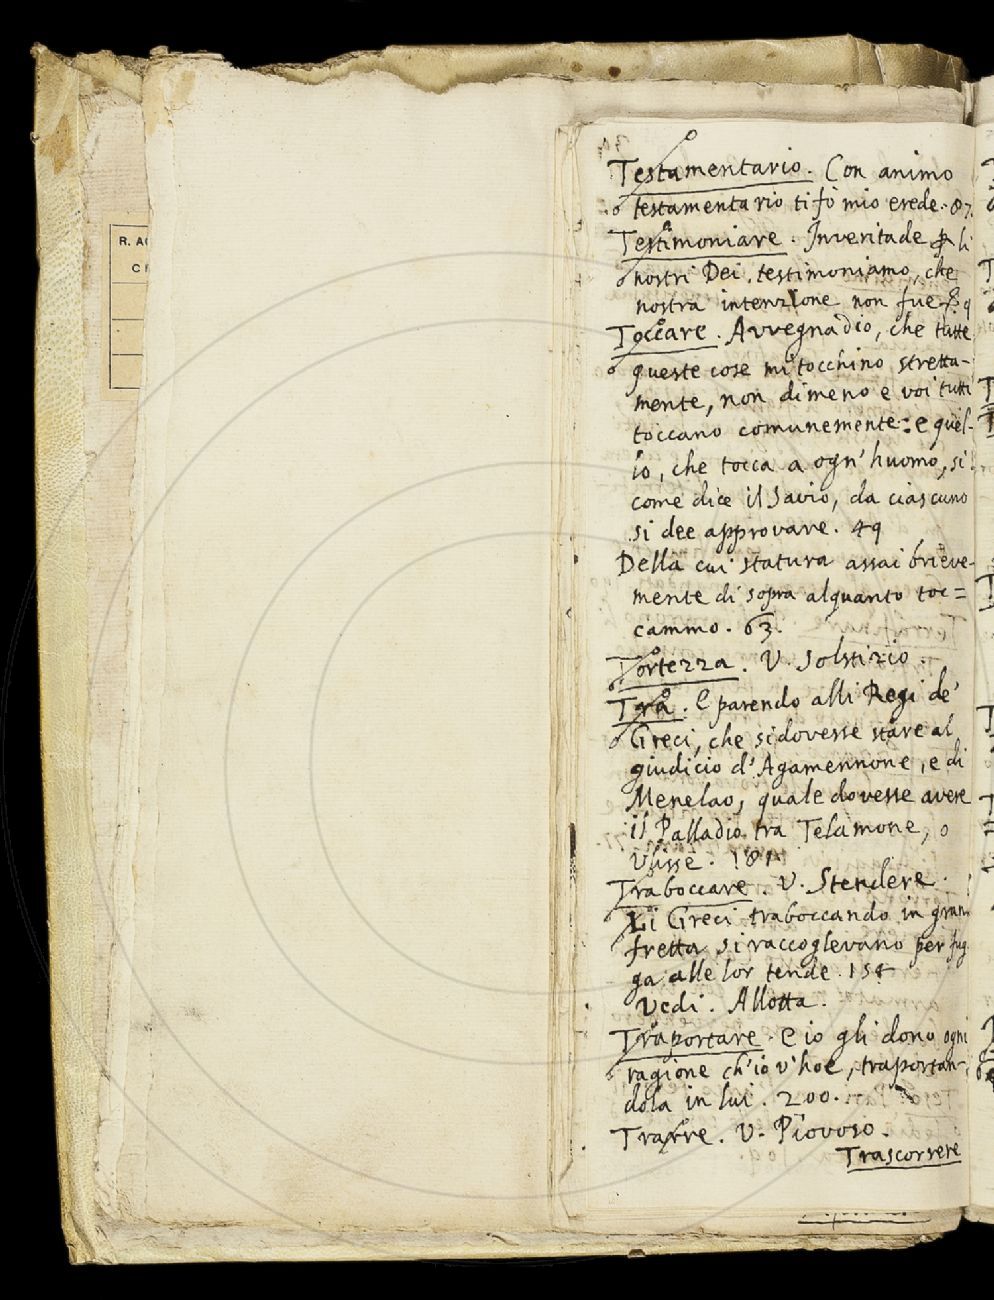 R. A
C
Testamentario. Con animo
testamentario ti fo mio erede. 87.
Testimoniare. In veritade li
nostri Dei testimoniamo, che
nostra intenzione non fue
Toccare. Avvegnadio, che tutte
queste cose mi tocchino stretta-
mente, non dimeno e voi tutti
toccano comunemente: e quel-
lo, che tocca a ogn' huomo, si
come dice il Savio, da ciascuno
si dee approvare. 49
Della cui statura assai brieve-
mente di sopra alquanto toc=
cammo. 63.
Tortezza. V. Solstizio.
Tra. E parendo alli Regi de'
Greci, che si dovesse stare al
giudicio d' Agamennone, e di
Menelao, quale dovesse avere
il Palladio tra Telamone, o
Ulisse. 181.
Traboccare. V. Stendere.
Li Greci traboccando in gran
fretta si raccoglevano per fug
ga alle lor tende. 154
Vedi. Allotta.
Traportare. E io gli dono ogni
ragione ch' io v' hoe, traportan-
dola in lui. 200.
Trarre. V. Piovoso.
Trascorrere